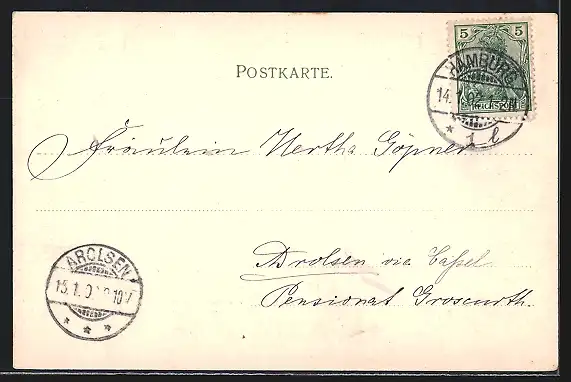 5 5
REICHSPOST
HAMBURG
14.1.02
* 1 l
POSTKARTE.
Fräulein Hertha Göpner
Arolsen via Cassel
Pensionat Groscurth.
AROLSEN
15.1.0 10V
* * *